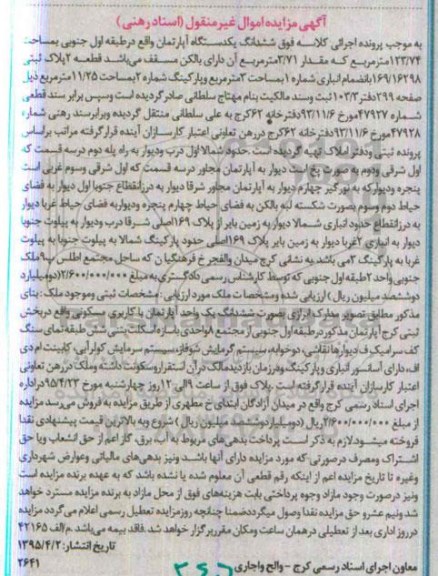 آگهی مزایده اموال غیرمنقول (اسناد رهنی)
به موجب پرونده اجرائی کلاسه فوق ششدانگ یکدستگاه آپارتمان واقع درطبقه اول جنوبی بمساحت
۱۲۳/۷۴مترمربع که مقدار ۳/۷۱مترمربع آن دارای بالکن مسقف می‌باشد قطعه ۲پلاک ثبتی
۱۶۹/۱۶۲۹۸بانضمام انباری شماره ۱بمساحت ۳مترمربع وپارکینگ شماره ۲بمساحت ۱۱/۲۵مترمربع ذیل
صفحه ۲۹۹دفتر ۱۰۳/۳ثبت وسند مالکیت بنام مهتاج سلطانی صادر گردیده است وسپس برابر سند قطعی
شماره ۴۷۹۲۷مورخ ۹۳/۱۱/۶دفترخانه ۶۲کرج به علی سلطانی منتقل گردیده وبرابرسند رهنی شماره
۴۷۹۲۸مورخ ۹۳/۱۱/۶دفترخانه ۶۲کرج دررهن تعاونی اعتبار کارسازان آینده قرارگرفته مراتب براساس
پرونده ثبتی ودفتر املاک تهیه گردیده است .حدود شمالا اول درب ودیوار به راه پله دوم درسه قسمت که
اول شرقی ودوم به صورت پخ است دیوار به آپارتمان مجاور درسه قسمت که اول شرقی وسوم غربی است
پنجره ودیوارکه به نورگیر چهارم دیوار به آپارتمان مجاور شرقا دیوار به درزانقطاع جنوبا اول دیوار به فضای
حیاط دوم بصورت شکسته لبه بالکن به فضای حیاط چهارم پنجره ودیواربه فضای حیاط غربا دیوار
به درزانقطاع حدود انباری شمالا دیواربه زمین بایر از پلاک ۱۶۹اصلی شرقا درب ودیوار به پیلوت جنوبا
دیوار به انباری ۲غربا دیوار به زمین بایر پلاک ۱۶۹اصلی حدود پارکینگ شمالا به پیلوت جنوبا به پیلوت
غربا به پارکینگ ۳می باشد.به نشانی کرج میدان والفجر خ فرهنگیان ک ساحل مجتمع اطلس پ۹ملک
جنوبی واحد ۲طبقه اول جنوبی که توسط کارشناس رسمی دادگستری به مبلغ ۲/۶۰۰/۰۰۰/۰۰۰(دومیلیارد
دوششصد میلیون ریال) ارزیابی شده ومشخصات ملک مورد ارزیابی: مشخصات ثبتی وموجود ملک: بنای
مذکور مطابق تصویر مدارک ابرازی بصورت ششدانگ یک واحد آپارتمان با کاربری مسکونی واقع دربخش
ثبتی کرج آپارتمان مذکور درطبقه اول جنوبی از مجتمع ۸واحدی باسازه اسکلت بتنی شش طبقه نمای سنگ
کف سرامیک ف دیوارها نقاشی، دوخوابه، سیستم گرمایش شوفاژ، سیستم سرمایش کولرآبی، کابینت ام دی
اف، دارای آسانسور انباری وپارکینگ ودرزمان بازدید مالک درآن استقرار وسکونت داشته وملک دررهن تعاونی
اعتبار کارسازان آینده قرارگرفته است .پلاک فوق از ساعت ۹الی ۱۲روز چهارشنبه مورخ ۹۵/۴/۲۳ دراداره
اجرای اسناد رسمی کرج واقع در میدان آزادگان ابتدای خ مطهری از طریق مزایده به فروش می‌رسد مزایده
از مبلغ ۲/۶۰۰/۰۰۰/۰۰۰ریال (دومیلیاردوششصد میلیون ریال) شروع وبه بالاترین قیمت پیشنهادی نقدا
فروخته میشود.لازم به ذکر است پرداخت بدهی‌های مربوط به آب، برق، گاز اعم از حق انشعاب ویا حق
اشتراک ومصرف درصورتی که مورد مزایده دارای آنها باشد ونیز بدهی‌های مالیاتی وعوارض شهرداری
وغیره تا تاریخ مزایده اعم از اینکه رقم قطعی آن معلوم شده یا نشده باشد که به عهده برنده مزایده است
ونیز درصورت وجود مازاد وجوه پرداختی بابت هزینه‌های فوق از محل مازاد به برنده مزایده مسترد خواهد
شد ونیم عشرو حق مزایده نقدا وصول میگرددضمنا چنانچه روزمزایده تعطیل رسمی اعلام می‌گردد مزایده
درروز اداری بعد از تعطیلی درهمان ساعت ومکان مقرربرگزار خواهد شد.فاقد بیمه می‌باشد .م/الف ۴۲۱۶۵
تاریخ انتشار: ۱۳۹۵/۴/۲
معاون اجرای اسناد رسمی کرج – والح واجاری
۳۶۴۱